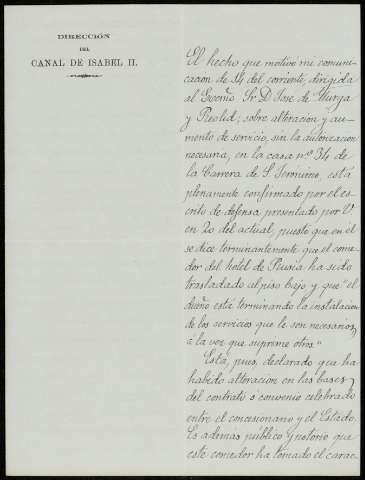 DIRECCIÓN
DEL
CANAL DE ISABEL II.
El hecho que motivó mi comuni-
cacion de 14 del corriente, dirigida
al Excmo Sr. D. Jose de Murga
y Reolid; sobre alteración y au-
mento de servicio, sin la autorizacion
necesaria, en la casa nº 34 de
la Carrera de S. Jerónimo, está
plenamente confirmado por el es-
crito de defensa, presentado por V.
en 20 del actual, puesto que en él
se dice terminantemente que el come-
dor del hotel de Rusia ha sido
trasladado al piso bajo y que "el
dueño está terminando la instalacion
de los servicios que le son necesarios,
á la vez que suprime otros."
Está, pues, declarado que ha
habido alteracion en las bases
del contrato ó convenio celebrado
entre el concesionario y el Estado.
Es ademas público y notorio que
este comedor ha tomado el carac-